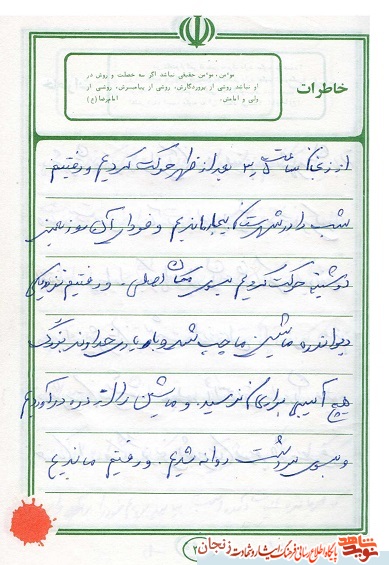 خاطرات
مؤمن، مؤمن حقیقی نباشد اگر سه خصلت و روش در
او نباشد روشی از پروردگارش، روشی از پیامبرش، روشی از
ولی و امامش. امام رضا (ع)
از زنجان ساعت ۲،۵ بعد از ظهر حرکت کردیم و رفتیم
شب را در شهرستان بیجار ماندیم و فردای آن روز یعنی
دوشنبه حرکت کردیم بسوی مکان اصلی. و رفتیم نزدیکی
دیواندره ماشین ما چپ شد و با یاری خداوند بزرگ
هیچ آسیبی برایمان نرسید. و ماشین را از دره درآوردیم
و بسوی سردشت روانه شدیم. و رفتیم ماندیم
۲
نوید شاهد
پایگاه اطلاع رسانی فرهنگ ایثار و شهادت زنجان